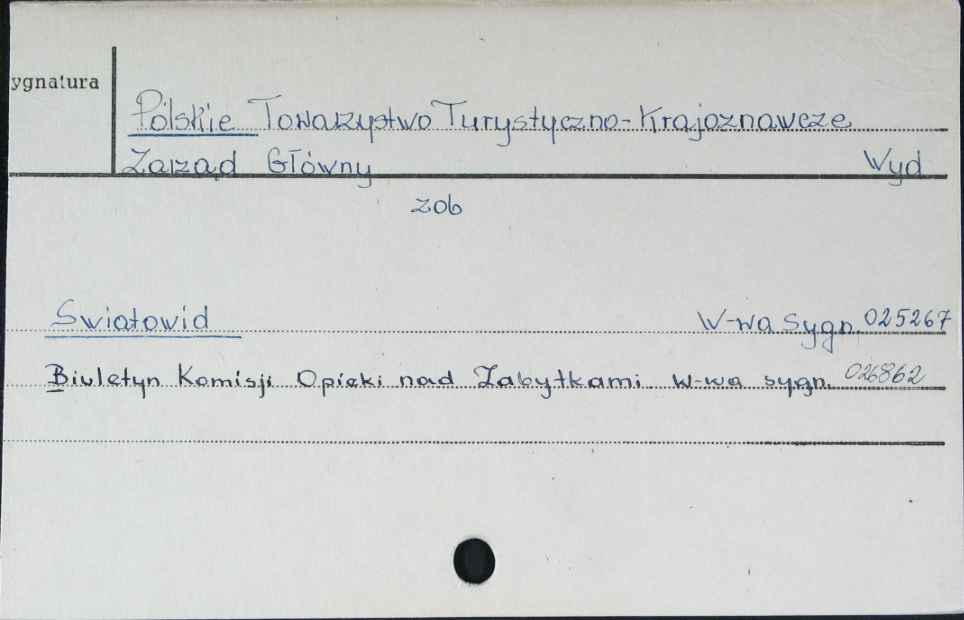 ygnatura
Polskie Towarzystwo Turystyczno-Krajoznawcze
Zarząd Główny Wyd
zob
Światowid W-wa Sygn. 025267
Biuletyn Komisji Opieki nad Zabytkami W-wa sygn. 026862